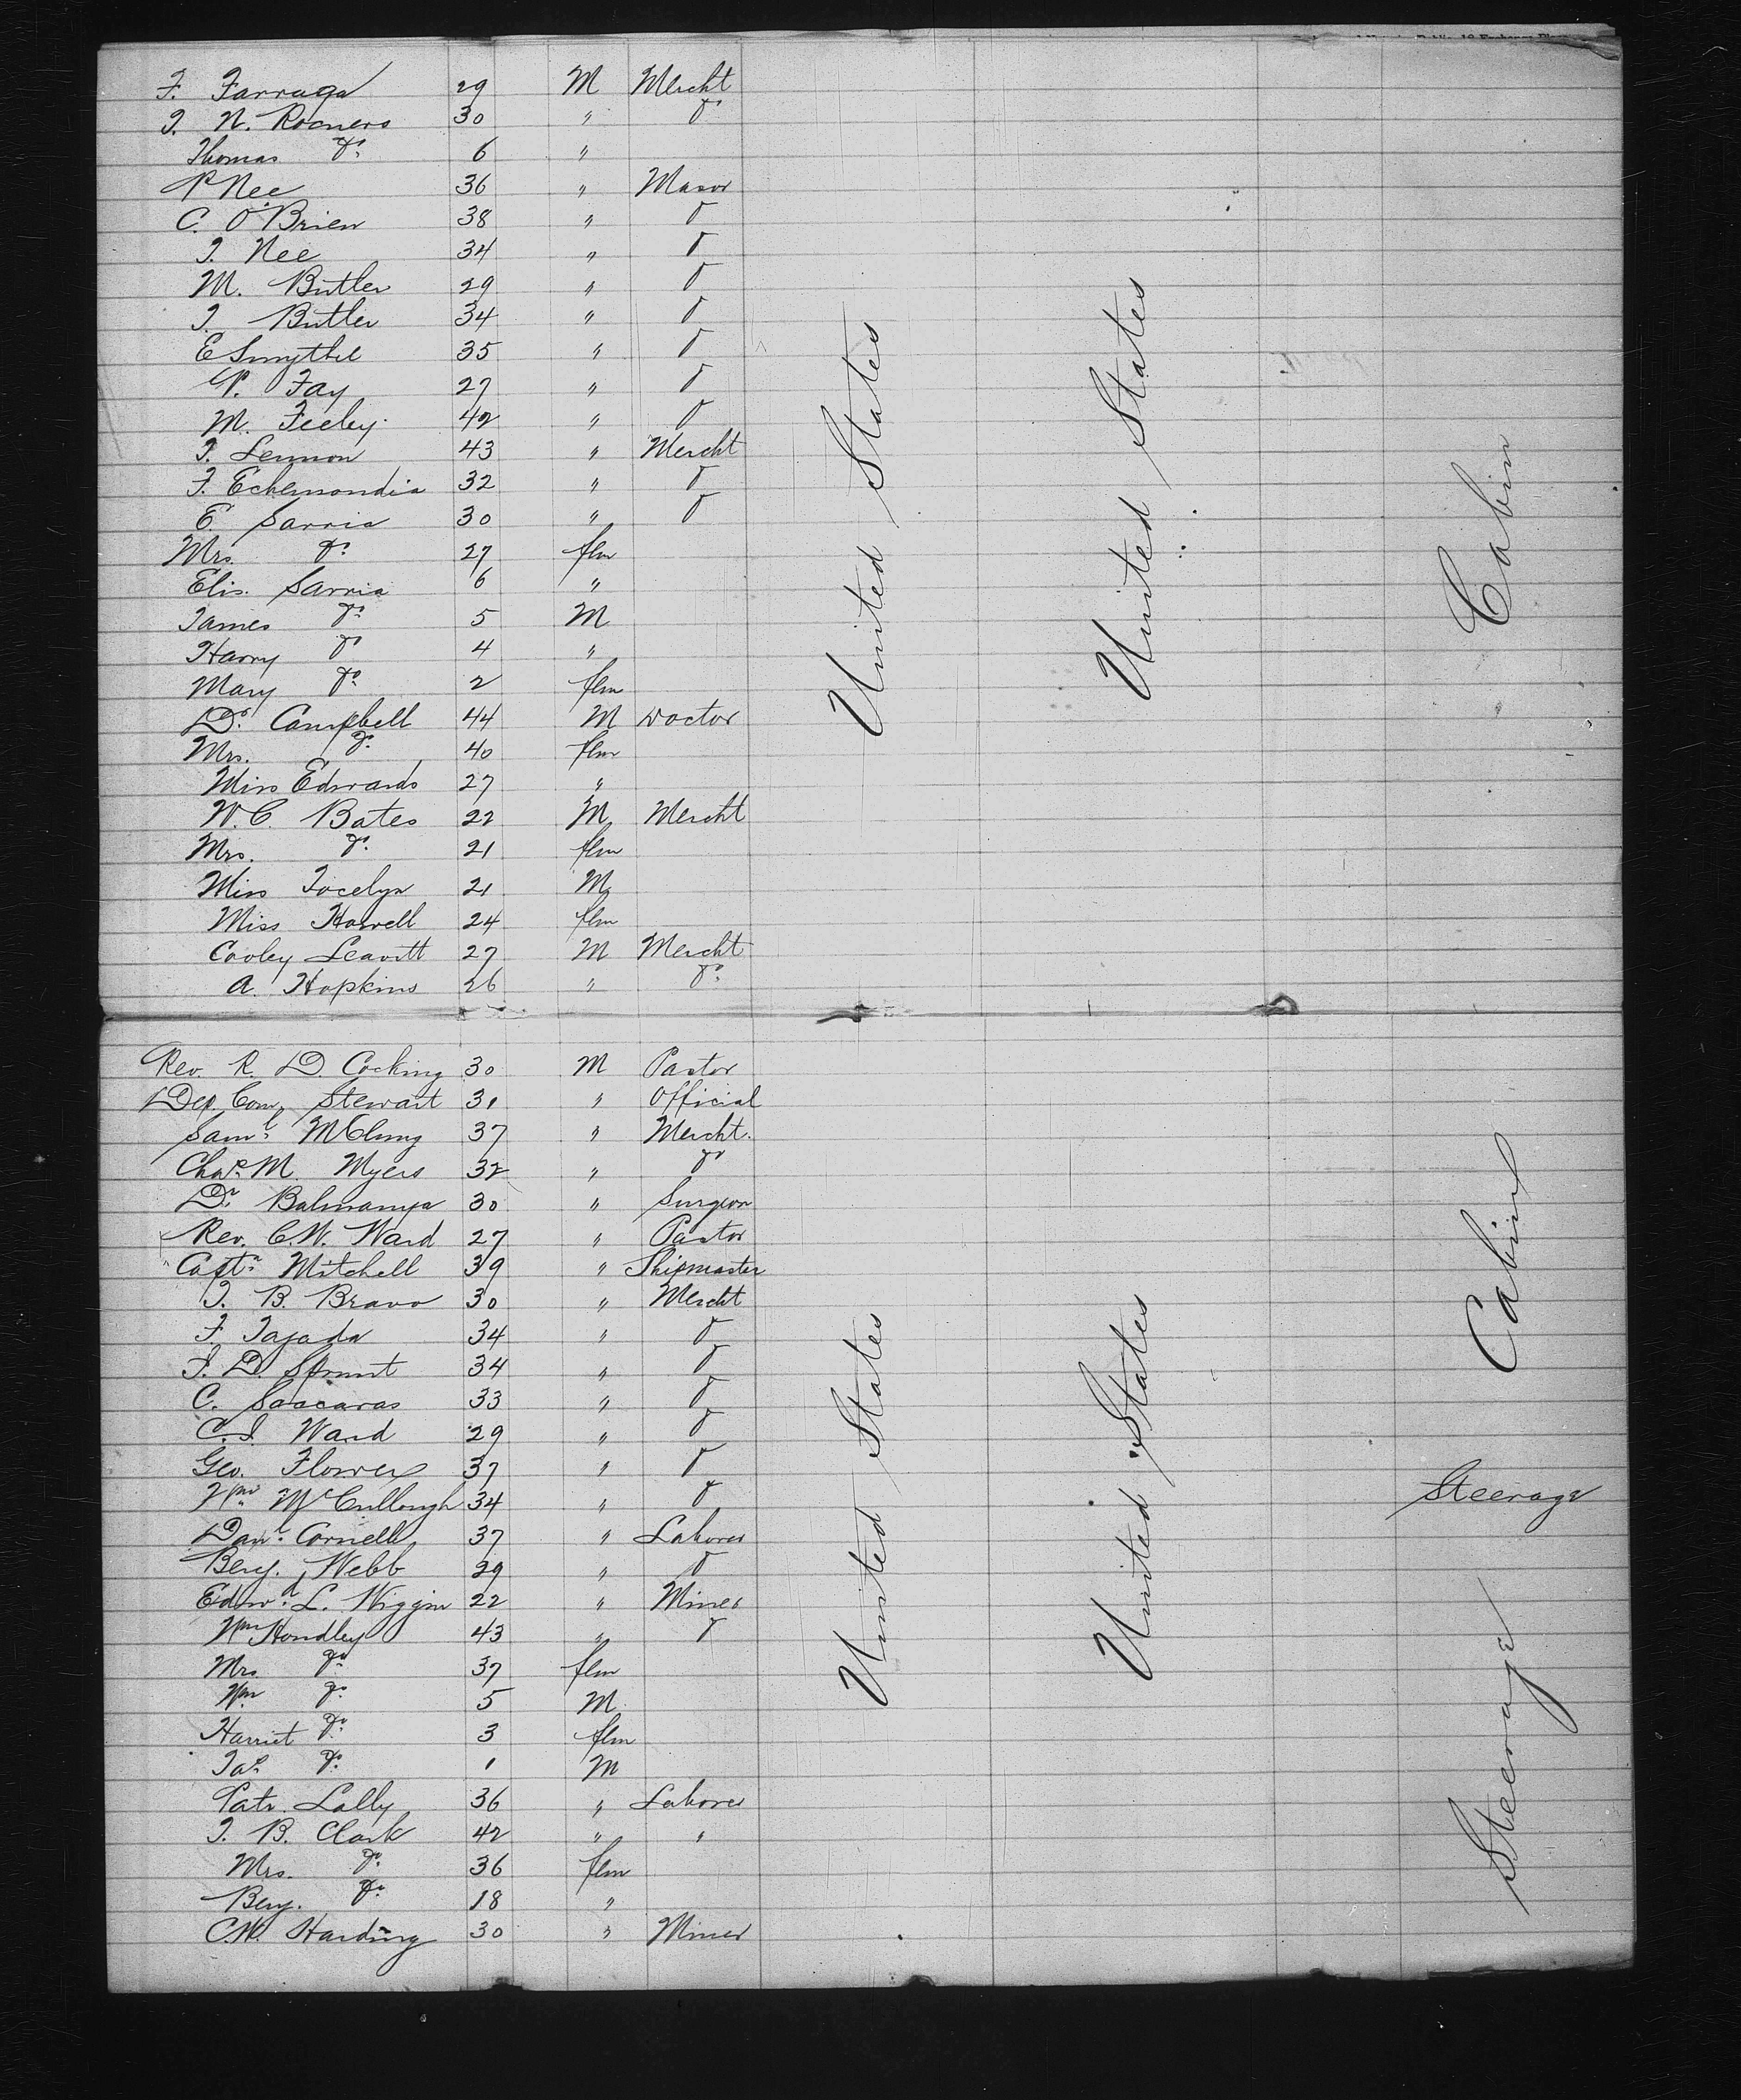 F. Farraga 29 M Mercht
J. N. Romero 30 " Do
Thomas Do 6 "
P Nee 36 " Mason
C. O'Brien 38 " Do
J. Nee 34 " Do
M. Butler 29 " Do
J. Butler 34 " Do
E Smythe 35 " Do
P. Fay 27 " Do
M. Feeley 42 " Do
J. Lennon 43 " Mercht
F. Echemondia 32 " Do
E. Sarria 30 " Do
Mrs. Do 27 flm
Elis. Sarria 6 "
James Do 5 M
Harry Do 4 "
Mary Do 2 flm
Dr. Campbell 44 M Doctor
Mrs. Do 40 flm
Miss Edwards 27 "
W. C. Bates 22 M Mercht
Mrs. Do 21 flm
Miss Jocelyn 21 M
Miss Howell 24 flm
Cooley Leavitt 27 M Mercht
A. Hopkins 26 " Do
United States
United States
Cabin
Rev. R. D. Cocking 30 M Pastor
Dep. Com. Stewart 31 " Official
Saml. McClung 37 " Mercht.
Chas. M Myers 32 " Do
Dr. 30 " Surgeon
Rev. C. W. Ward 27 " Pastor
Captn. Mitchell 39 " Shipmaster
J. B. Bravo 30 " Mercht
F. Tajada 34 " Do
J. D. Sprunt 34 " Do
C. 33 " Do
C. J. Ward 29 " Do
Geo. Flower 37 " Do
Wm. McCullough 34 " Do
Danl. Cornell 37 " Laborer
Benj. Webb 29 " Do
Edwd. L. Wiggin 22 " Miner
Wm Hondley 43 " Do
Mrs. Do 37 flm
Wm Do 5 M
Harriet Do 3 flm
Jas. Do 1 M
Patr. Lally 36 " Laborer
J. B. Clark 42 " "
Mrs. Do 36 flm
Benj. Do 18 "
C. W. Harding 30 " Miner
United States
United States
Cabin
Steerage
Steerage